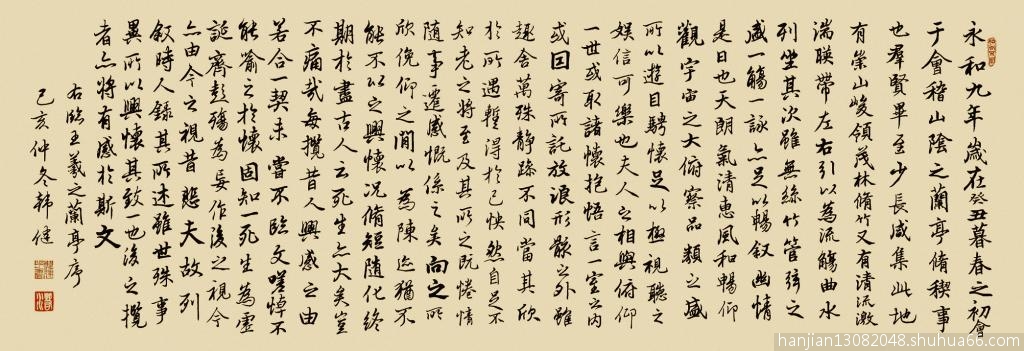 永和九年歲在癸丑暮春之初會
于會稽山陰之蘭亭脩稧事
也羣賢畢至少長咸集此地
有崇山峻領茂林脩竹又有清流激
湍暎帶左右引以為流觴曲水
列坐其次雖無絲竹管弦之
盛一觴一詠亦足以暢敘幽情
是日也天朗氣清惠風和暢仰
觀宇宙之大俯察品類之盛
所以遊目騁懷足以極視聽之
娛信可樂也夫人之相與俯仰
一世或取諸懷抱悟言一室之內
或因寄所託放浪形骸之外雖
趣舍萬殊静躁不同當其欣
於所遇暫得於己怏然自足不
知老之將至及其所之既惓情
隨事遷感慨係之矣向之所
欣俛仰之閒以為陳迹猶不
能不以之興懷況脩短隨化終
期於盡古人云死生亦大矣豈
不痛哉每攬昔人興感之由
若合一契未嘗不臨文嗟悼不
能喻之於懷固知一死生為虛
誕齊彭殤為妄作後之視今
亦由今之視昔悲夫故列
敘時人錄其所述雖世殊事
異所以興懷其致一也後之攬
者亦將有感於斯文
右臨王羲之蘭亭序
己亥仲冬韩健
hanjian13082048.shuhua66.com